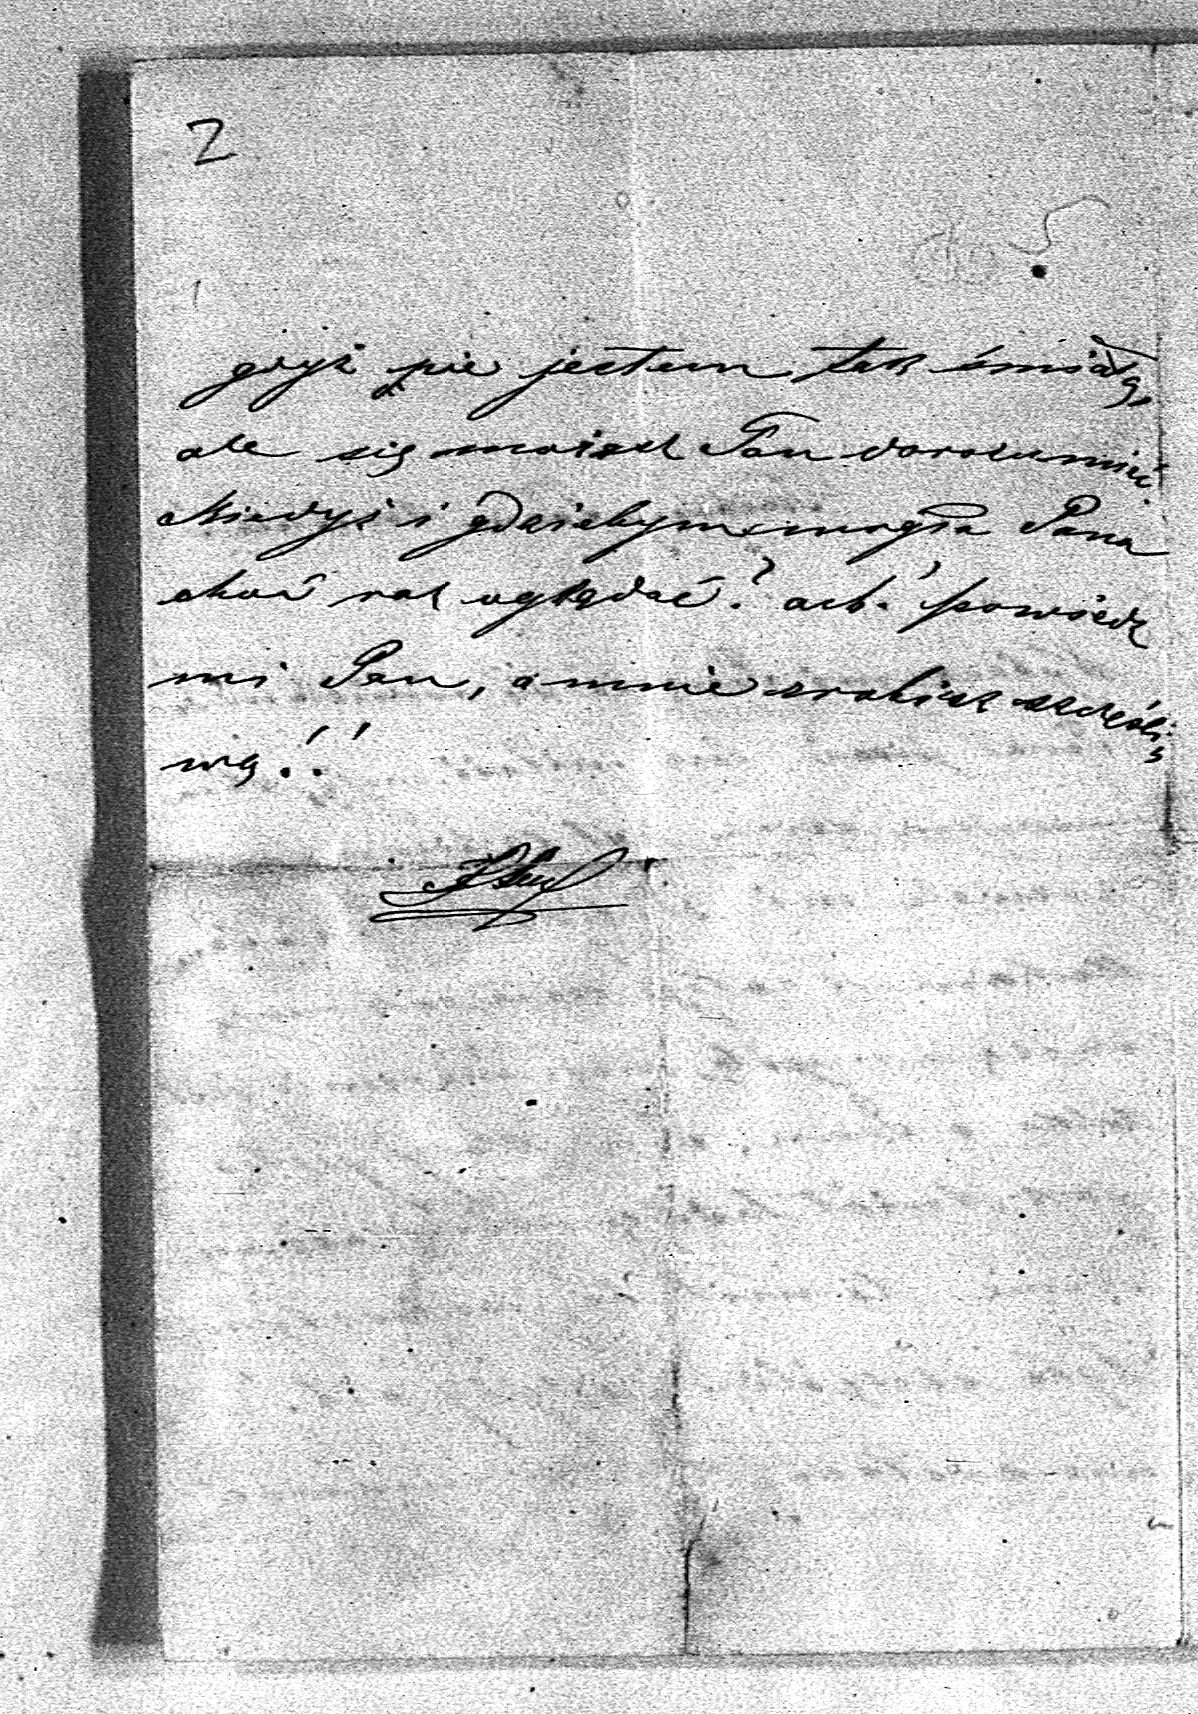 2
gdyż nie jestem tak śmiałą,
ale się możesz Pan dorozumieć.
Kiedyż i gdziebym mogła Pana
choć raz oglądać? ach! powiedz
mi Pan, a mnie zrobisz szczęśli-
wą!!